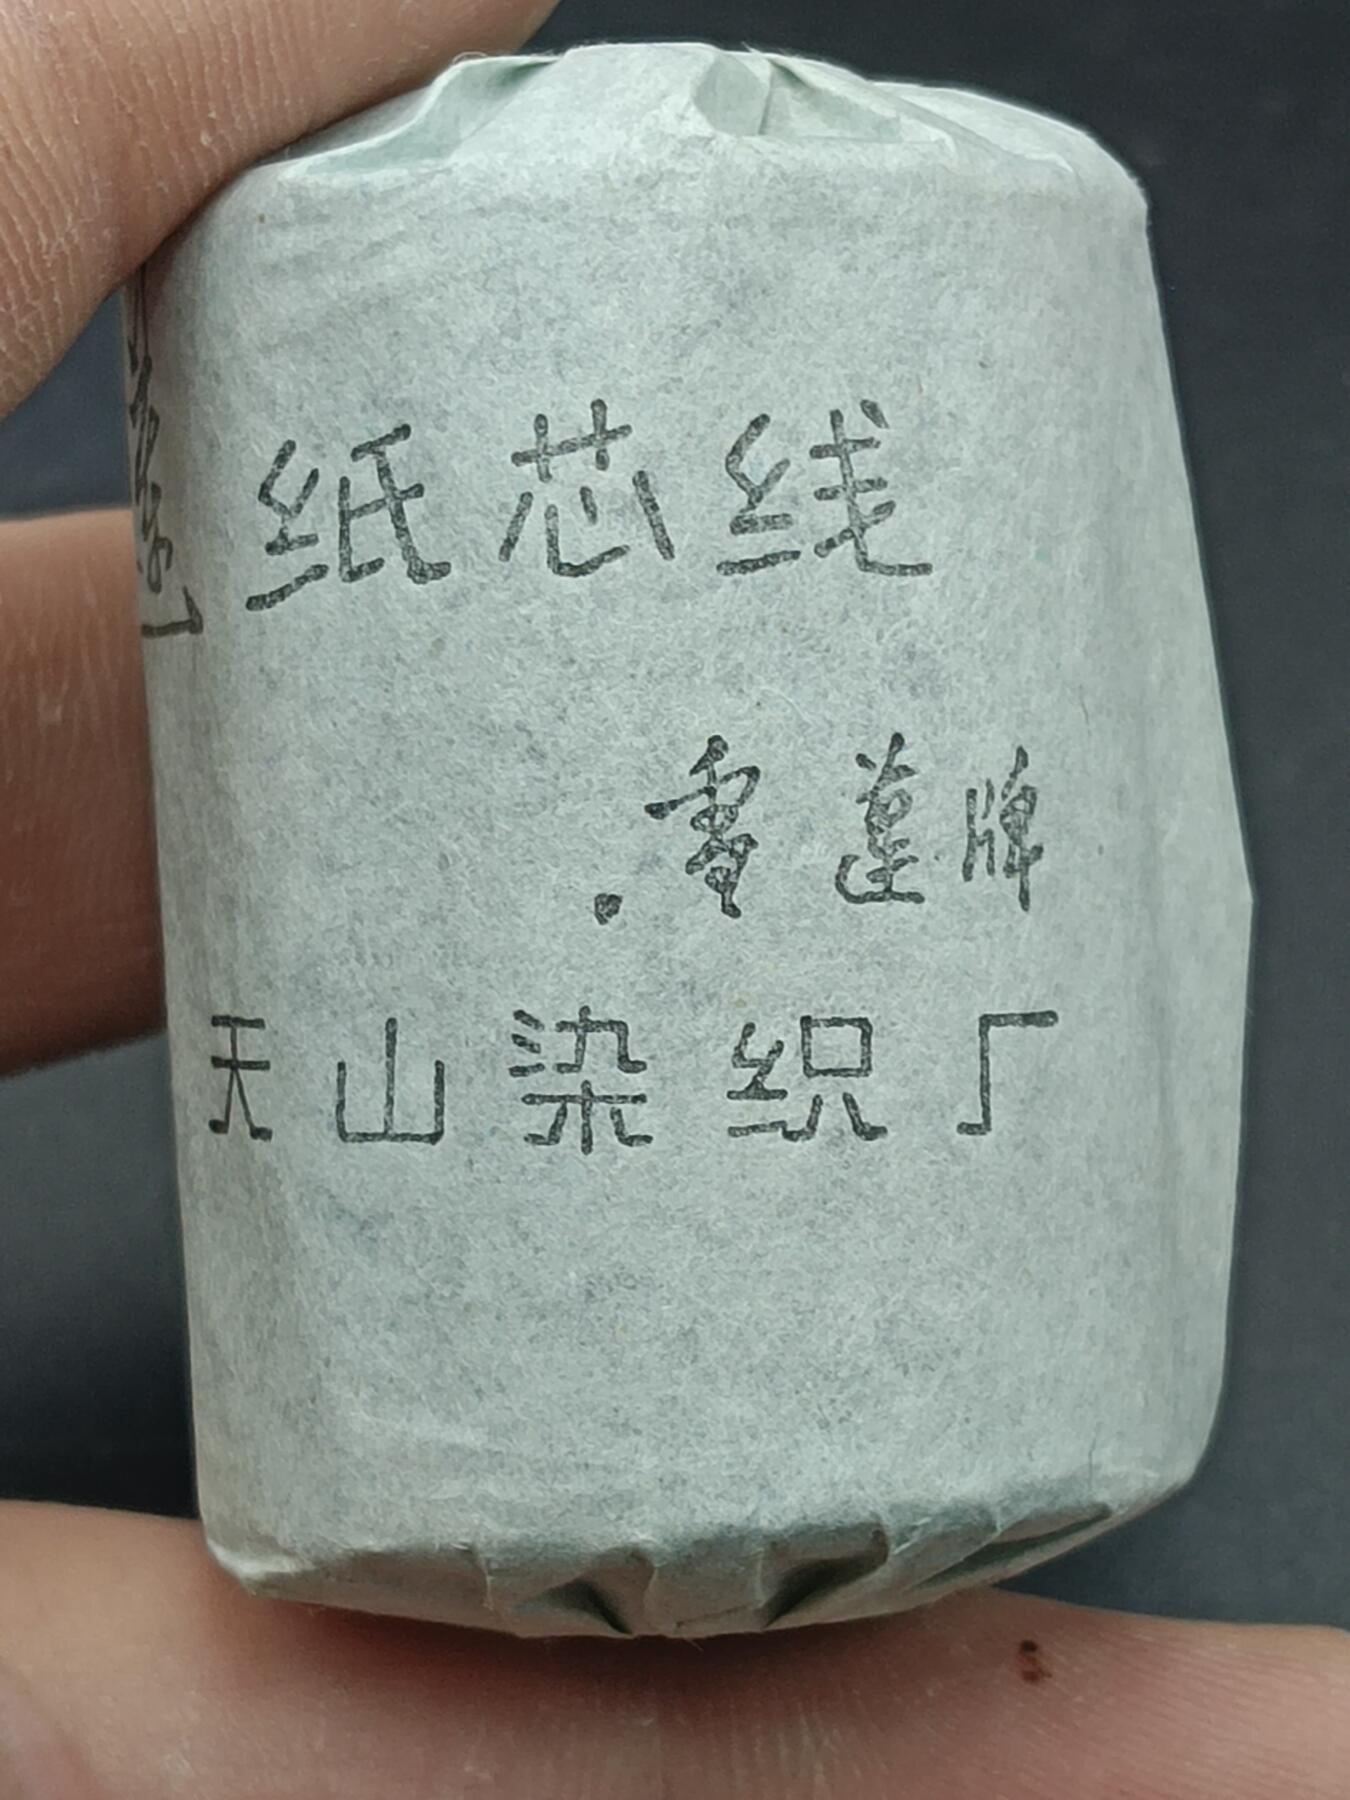 纸芯线
雪莲牌
天山染织厂